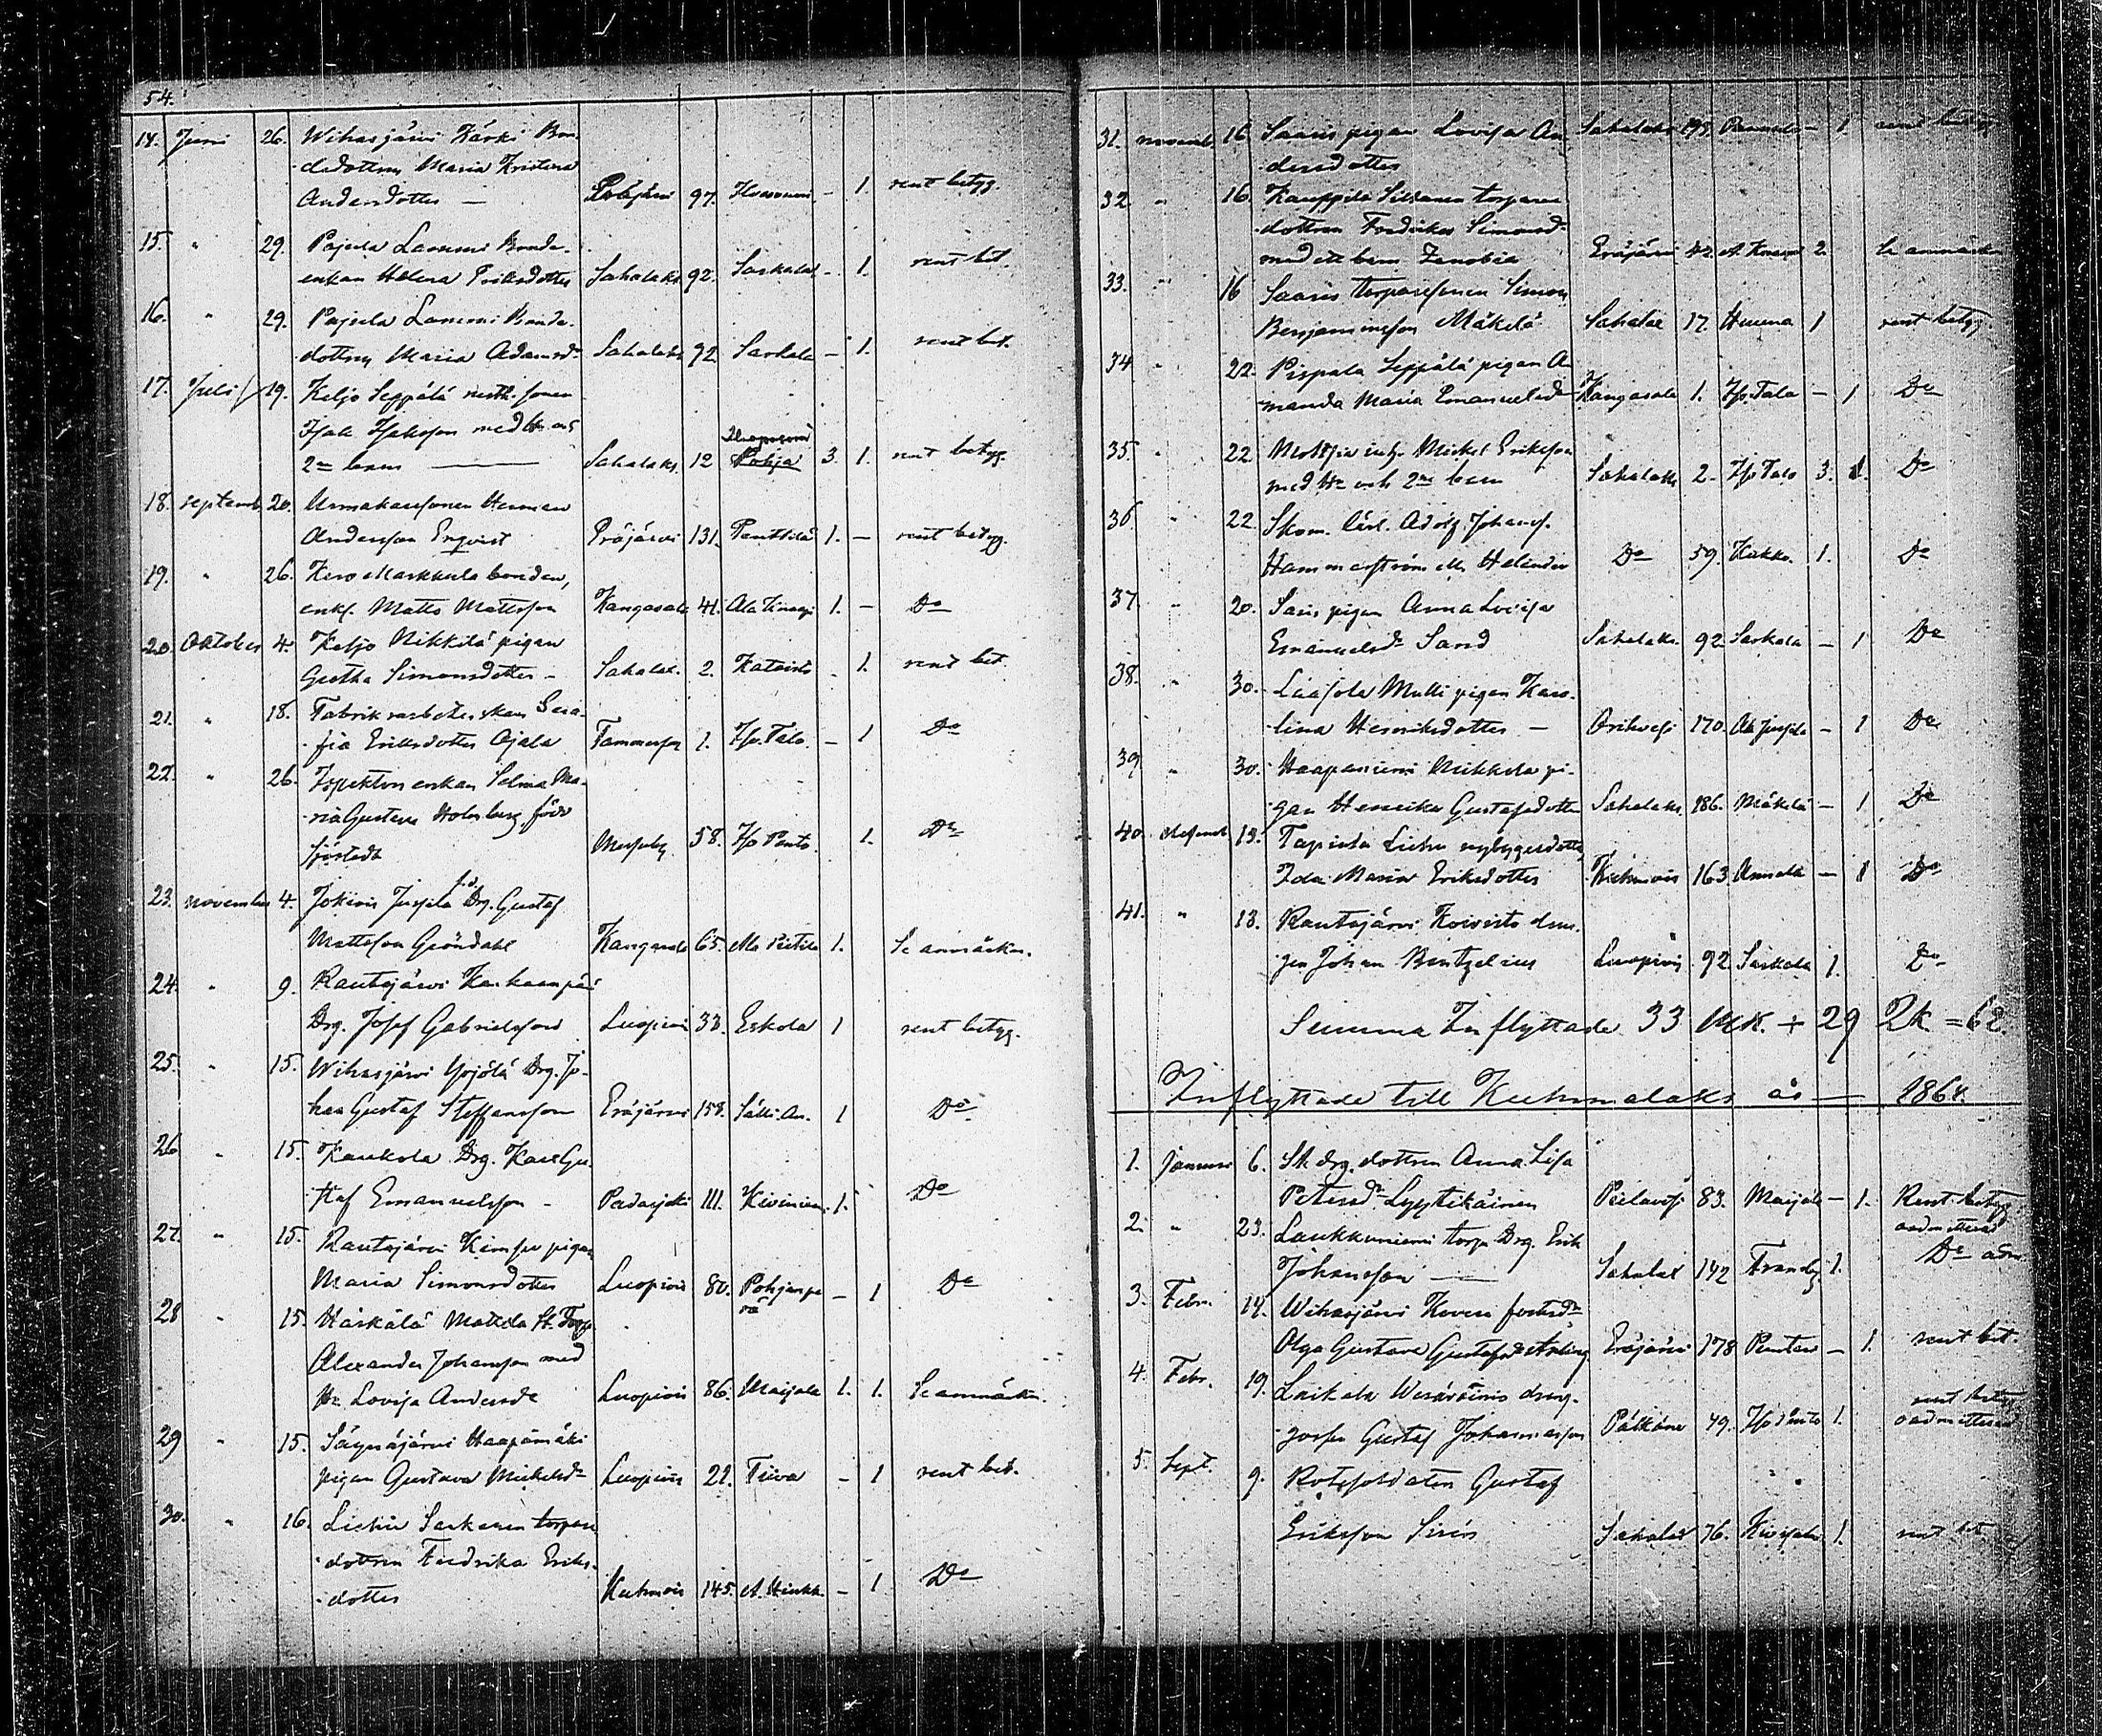 54.
14. Juni 26. Wihasjärvi Kärki Bon-
dedottren Maria Kristina
Andersdotter — Eräjärvi 97. - 1. rent betyg.
15. " 29. Pajula Lammi Bonde-
enkan Helena Eriksdotter Sahalaks 92. Saskala - 1. rent bet.
16. " 29. Pajula Lammi Bonde-
dottren Maria Adamsdr Sahalaks 92 Saskala - 1. rent bet.
17. Juli 19. Keljo Seppälä
Isak Isaksson med Hu och
2ne barn — Sahalaks. 12 Haaponiemi Pohja 3. 1. rent betyg.
18. septemb. 20. Urmakaresonen Herman
Andersson Enqvist Eräjärvi 131. Penttilä 1. - rent betyg.
19. " 26. Markkula bonden,
enkl. Matts Mattsson Kangasala 41. Ala 1. - Do
20. Oktober 4. Keljo Nikkilä pigan
Gretha Simonsdotter - Sahalax. 2. Kataisto - 1. rent bet.
21. " 18. Fabriksarbeterskan Sera-
fia Eriksdotter Ojala Tammerfors 1. Ifr Talo. - 1 Do
22. " 26. Ispektors enkan Selma Ma-
ria Gustava Holmberg född
Sjöstedt Messuby 58. Ifr Pento. 1. Do
23. november 4. Jokiois Jussila Drg. Gustaf
Mattsson Gröndahl Kangasala 65. Ala Pietila 1. Se anmärkn.
24. " 9. Rautajärvi Kankaanpää
Drg. Josef Gabrielsson Luopiois 33. Eskola 1 rent betyg.
25. " 15. Wihasjärvi Yrjölä Drg. Jo-
han Gustaf Steffansson Eräjärvi 158. Sälli An. 1 Do
26 " 15. Kaukola Drg. Karl Gu-
staf Emanuelsson - Padasjoki 111. Kiviniem. 1. Do
27. " 15. Rautajärvi Kimpu pigan
Maria Simonsdotter Luopiois 80. Pohjanpe
rä - 1 Do
28 " 15. Haskälä Mattila St. Torp.
Alexander Johansson med
Hu. Lovisa Andersdr Luopiois 86. Maijala 1. 1. Se anmärkn.
29 " 15. Säynäjärvi Haapamäki
pigan Gustava Mickelsdr Luopiois 22. Tiiva - 1 rent bet.
30. " 16. Liehu Saskanen torpare
dottren Fredrika Eriks-
dotter Kuhmois 145. A. Heikk - 1 Do
31. novemb. 16 Saaris pigan Lovisa An
dersdotter Sahalaks - 1. rent betyg
32 " 16. Kauppila Sillanen torpare
dottren Fredrika Simonsdr
med ett barn Zenobia Eräjärvi 42. 2. Se anmärkn
33. " 16 Saaris torparesonen Simon
Benjaminsson Mäkelä Sahalax 17. Huuna 1 rent betyg.
34 " 22. Pispala Seppälä pigan A-
manda Maria Emanuelsdr Kangasala 1. Ifr Talo - 1 Do
35. " 22 Inhys Mickel Eriksson
med Hu och 2ne barn Sahalaks 2. Ifr Talo 3. 1. Do
36. " 22. Skom. lärl. Adolf Johanss.
Hammarström ell. Helander Do 59. Kukko. 1. Do
37. " 20. Saris pigan Anna Lovisa
Emanuelsdr Sand Sahalaks. 92 Saskala - 1 Do
38. " 30. Laasola Mulli pigan Karo-
lina Henriksdotter — Orihvesi 170. Ala Jussila - 1 Do
39. " 30. Haapaniemi Nikkilä pi-
gan Henrika Gustafsdotter Sahalaks. 186. Mäkelä - 1 Do
40. desemb 13. Tapiola Liehu nybygesdotter
Ida Maria Eriksdotter Kuhmois 163. Annala - 1 Do
41. " 13. Rautajärvi Koivisto drän-
gen Johan Bentzelius Luopiois 92 Saskala 1. Do
Summa Inflyttade 33 Mk. + 29 Qk = 62.
Inflyttade till Kuhmalaks år — 1864.
1. Januari 6. St. drg. dottren Anna Lisa
Petersdr Lyytikäinen Pielavesi 83. Maijala - 1. Rent betyg.
oadmitterad
2. " 23. Laukkuniemi torp. Drg. Erik
Johansson — Sahalax 142 Frandig 1. Do adm.
3. Febr. 14. Wihasjärvi Kovero fosterdr
Olga Gustava Gustafsdr Eräjärvi 178 - 1. rent bet.
4. Febr. 19. Laikala dreng-
gossen Gustaf Johansson Pälkäne 49. Ifr Pento 1. rent betyg.
oadmitterad
5. Sept. 9. Rotesoldaten Gustaf
Eriksson Sirén Sahalax 76. 1. rent bet